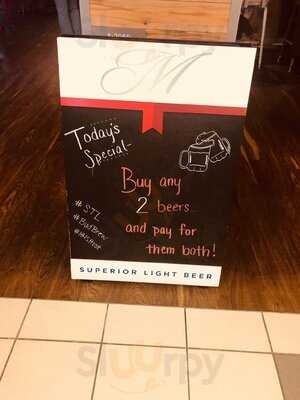 M
Today's
Special-
Buy any
2 beers
and pay for
them both!
#STL
#BadBeer
SUPERIOR LIGHT BEER
Sluurpy